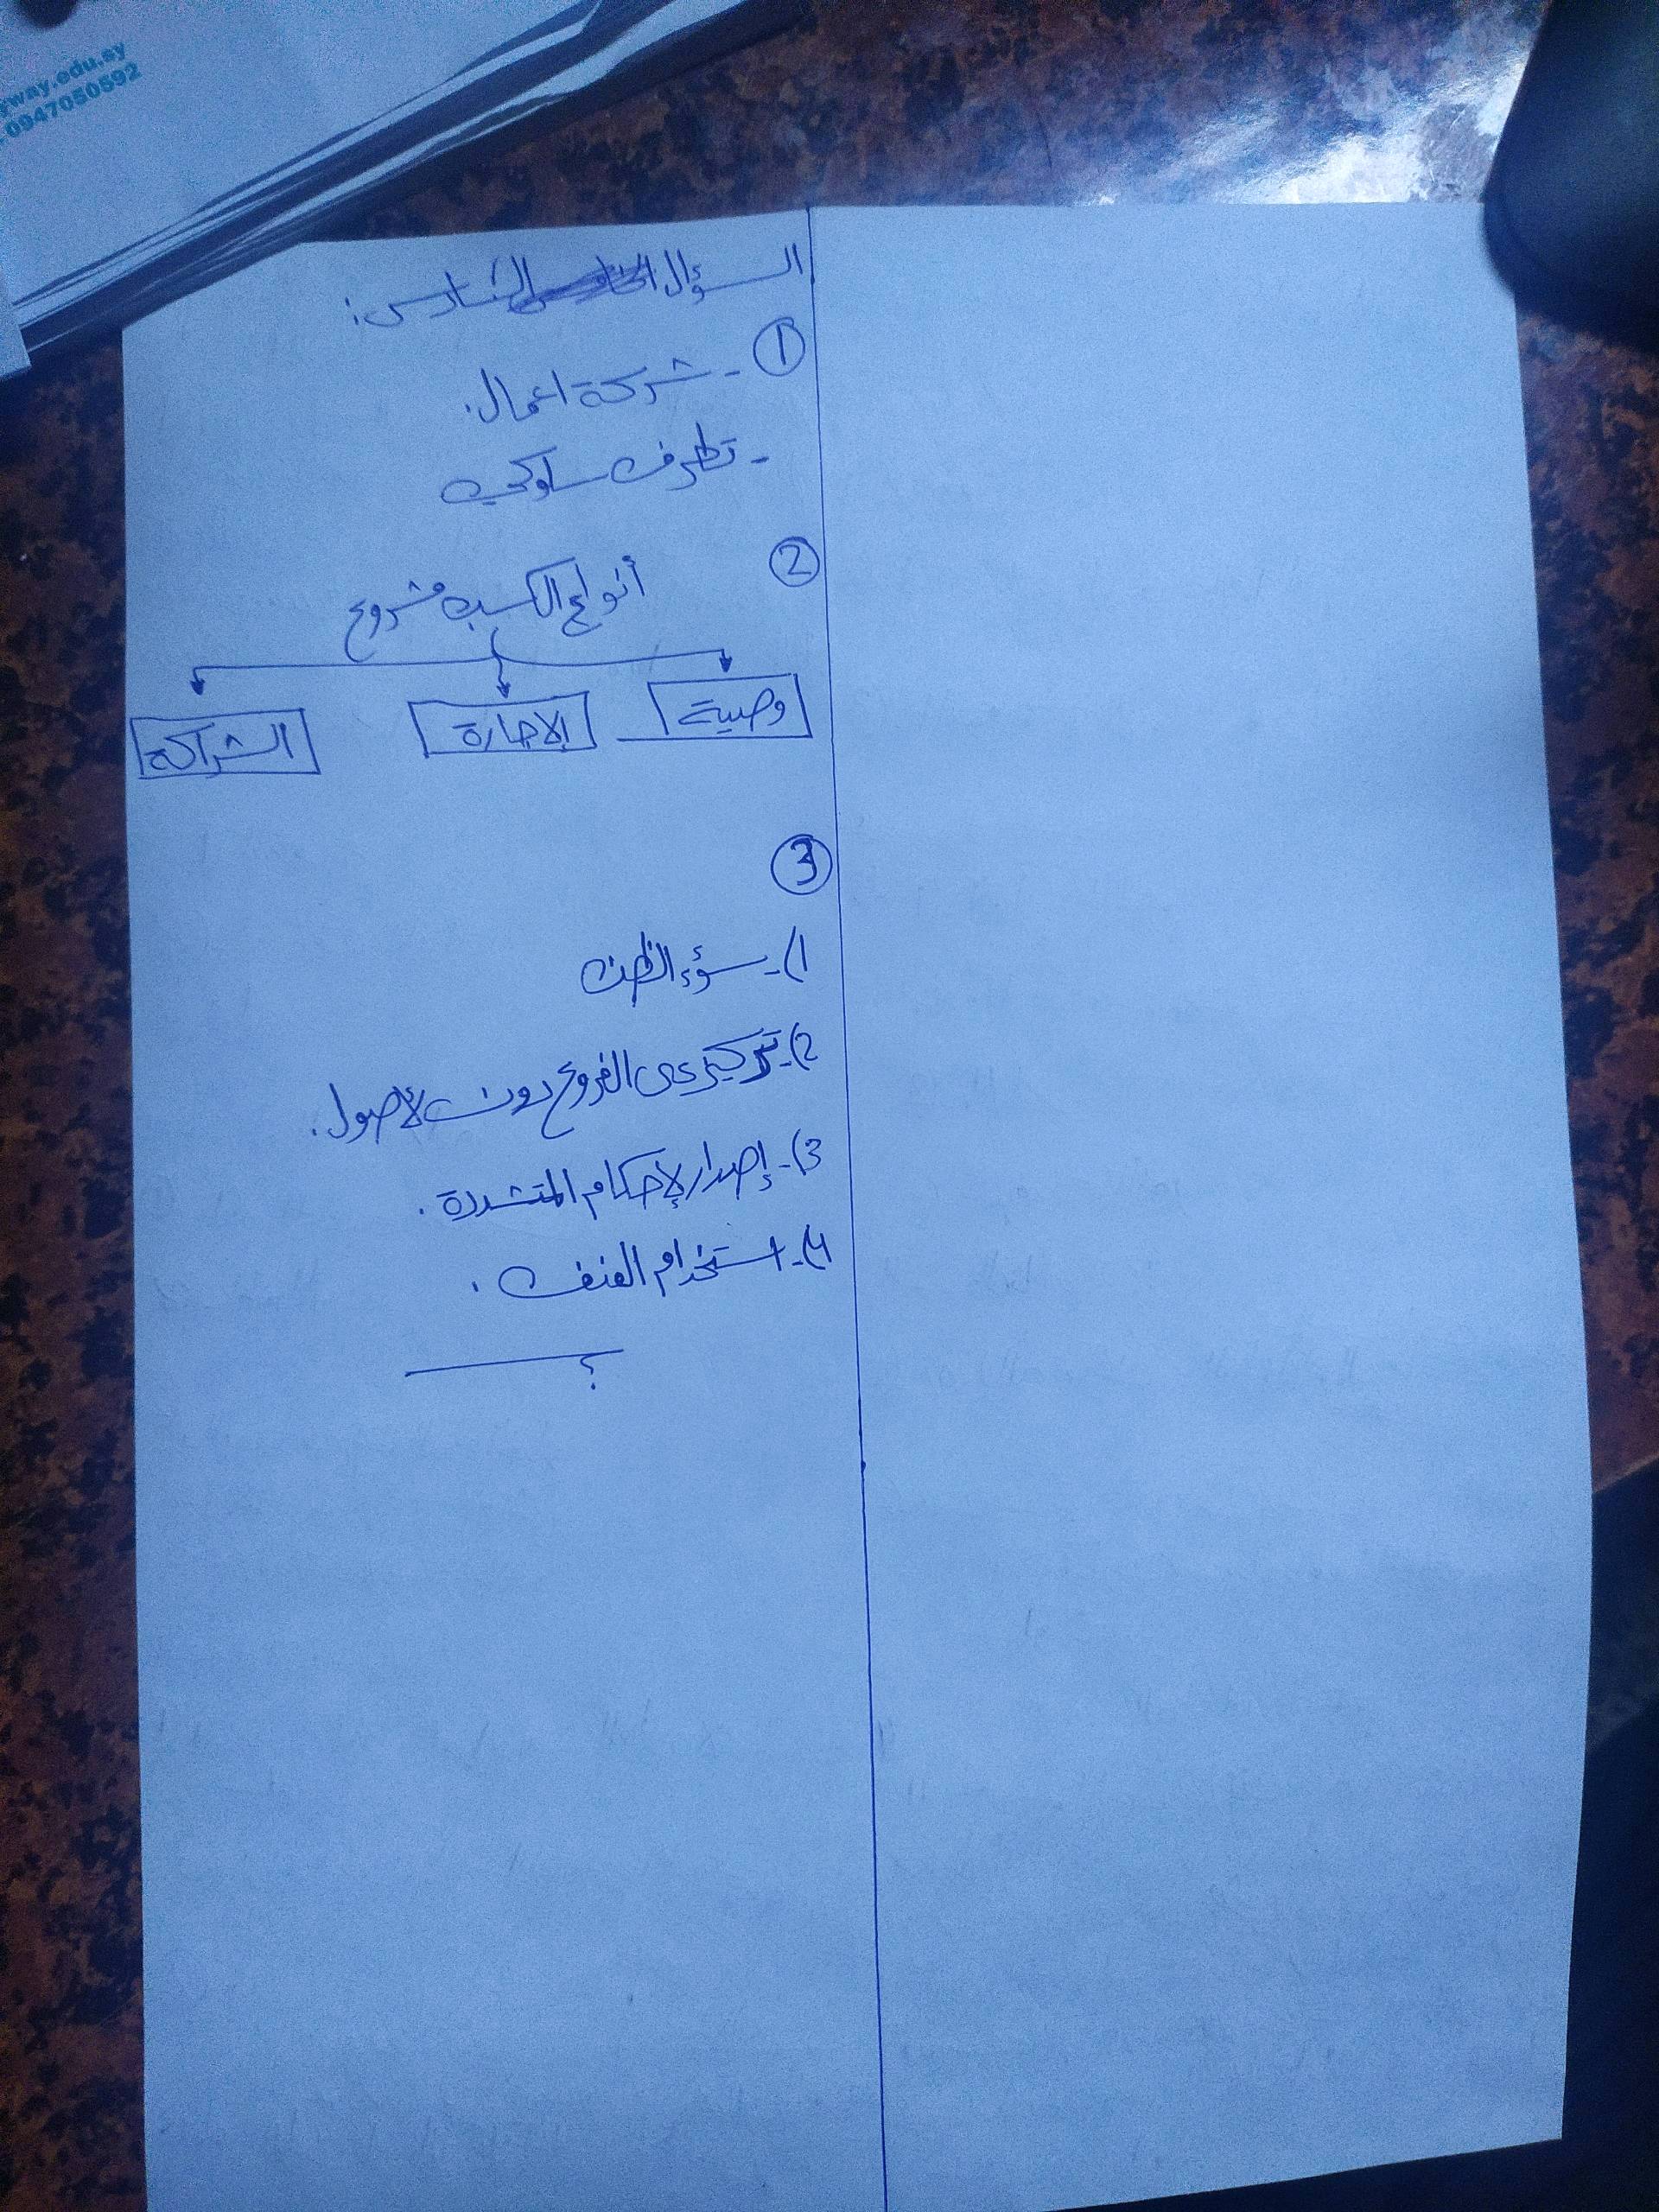 gway.edu.sy
0947050592
السؤال السادس:
①
- شركة اعمال.
- تطرف سلوكي
②
أنواع الكسب مشروع
وصية
الإجارة
الشراكة
③
1)- سؤء الظن
2)- تركيز على الفروع دون لأصول.
3)- إصدار لإحكام المتشددة.
4)- استخدام العنف.
؟